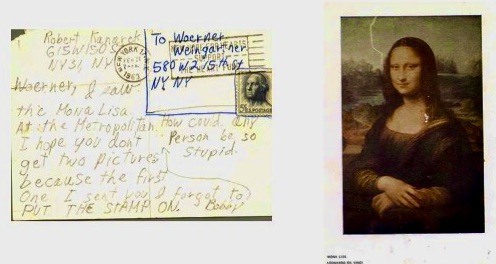 Robert Kanarek
615W 150 St
NY 31, NY
To Woerner
Weingartner
580 W 215th St
NY NY
NEW YORK
SUPPORT
HEART FUND
5¢ U.S. POSTAGE
Woerner, I saw
the Mona Lisa
At the Metropolitan
I hope you don't
get two pictures
because the first
One I sent you I forgot to
PUT THE STAMP ON. Bobby
How could any
Person be so
Stupid.
MONA LISA
LEONARDO DA VINCI